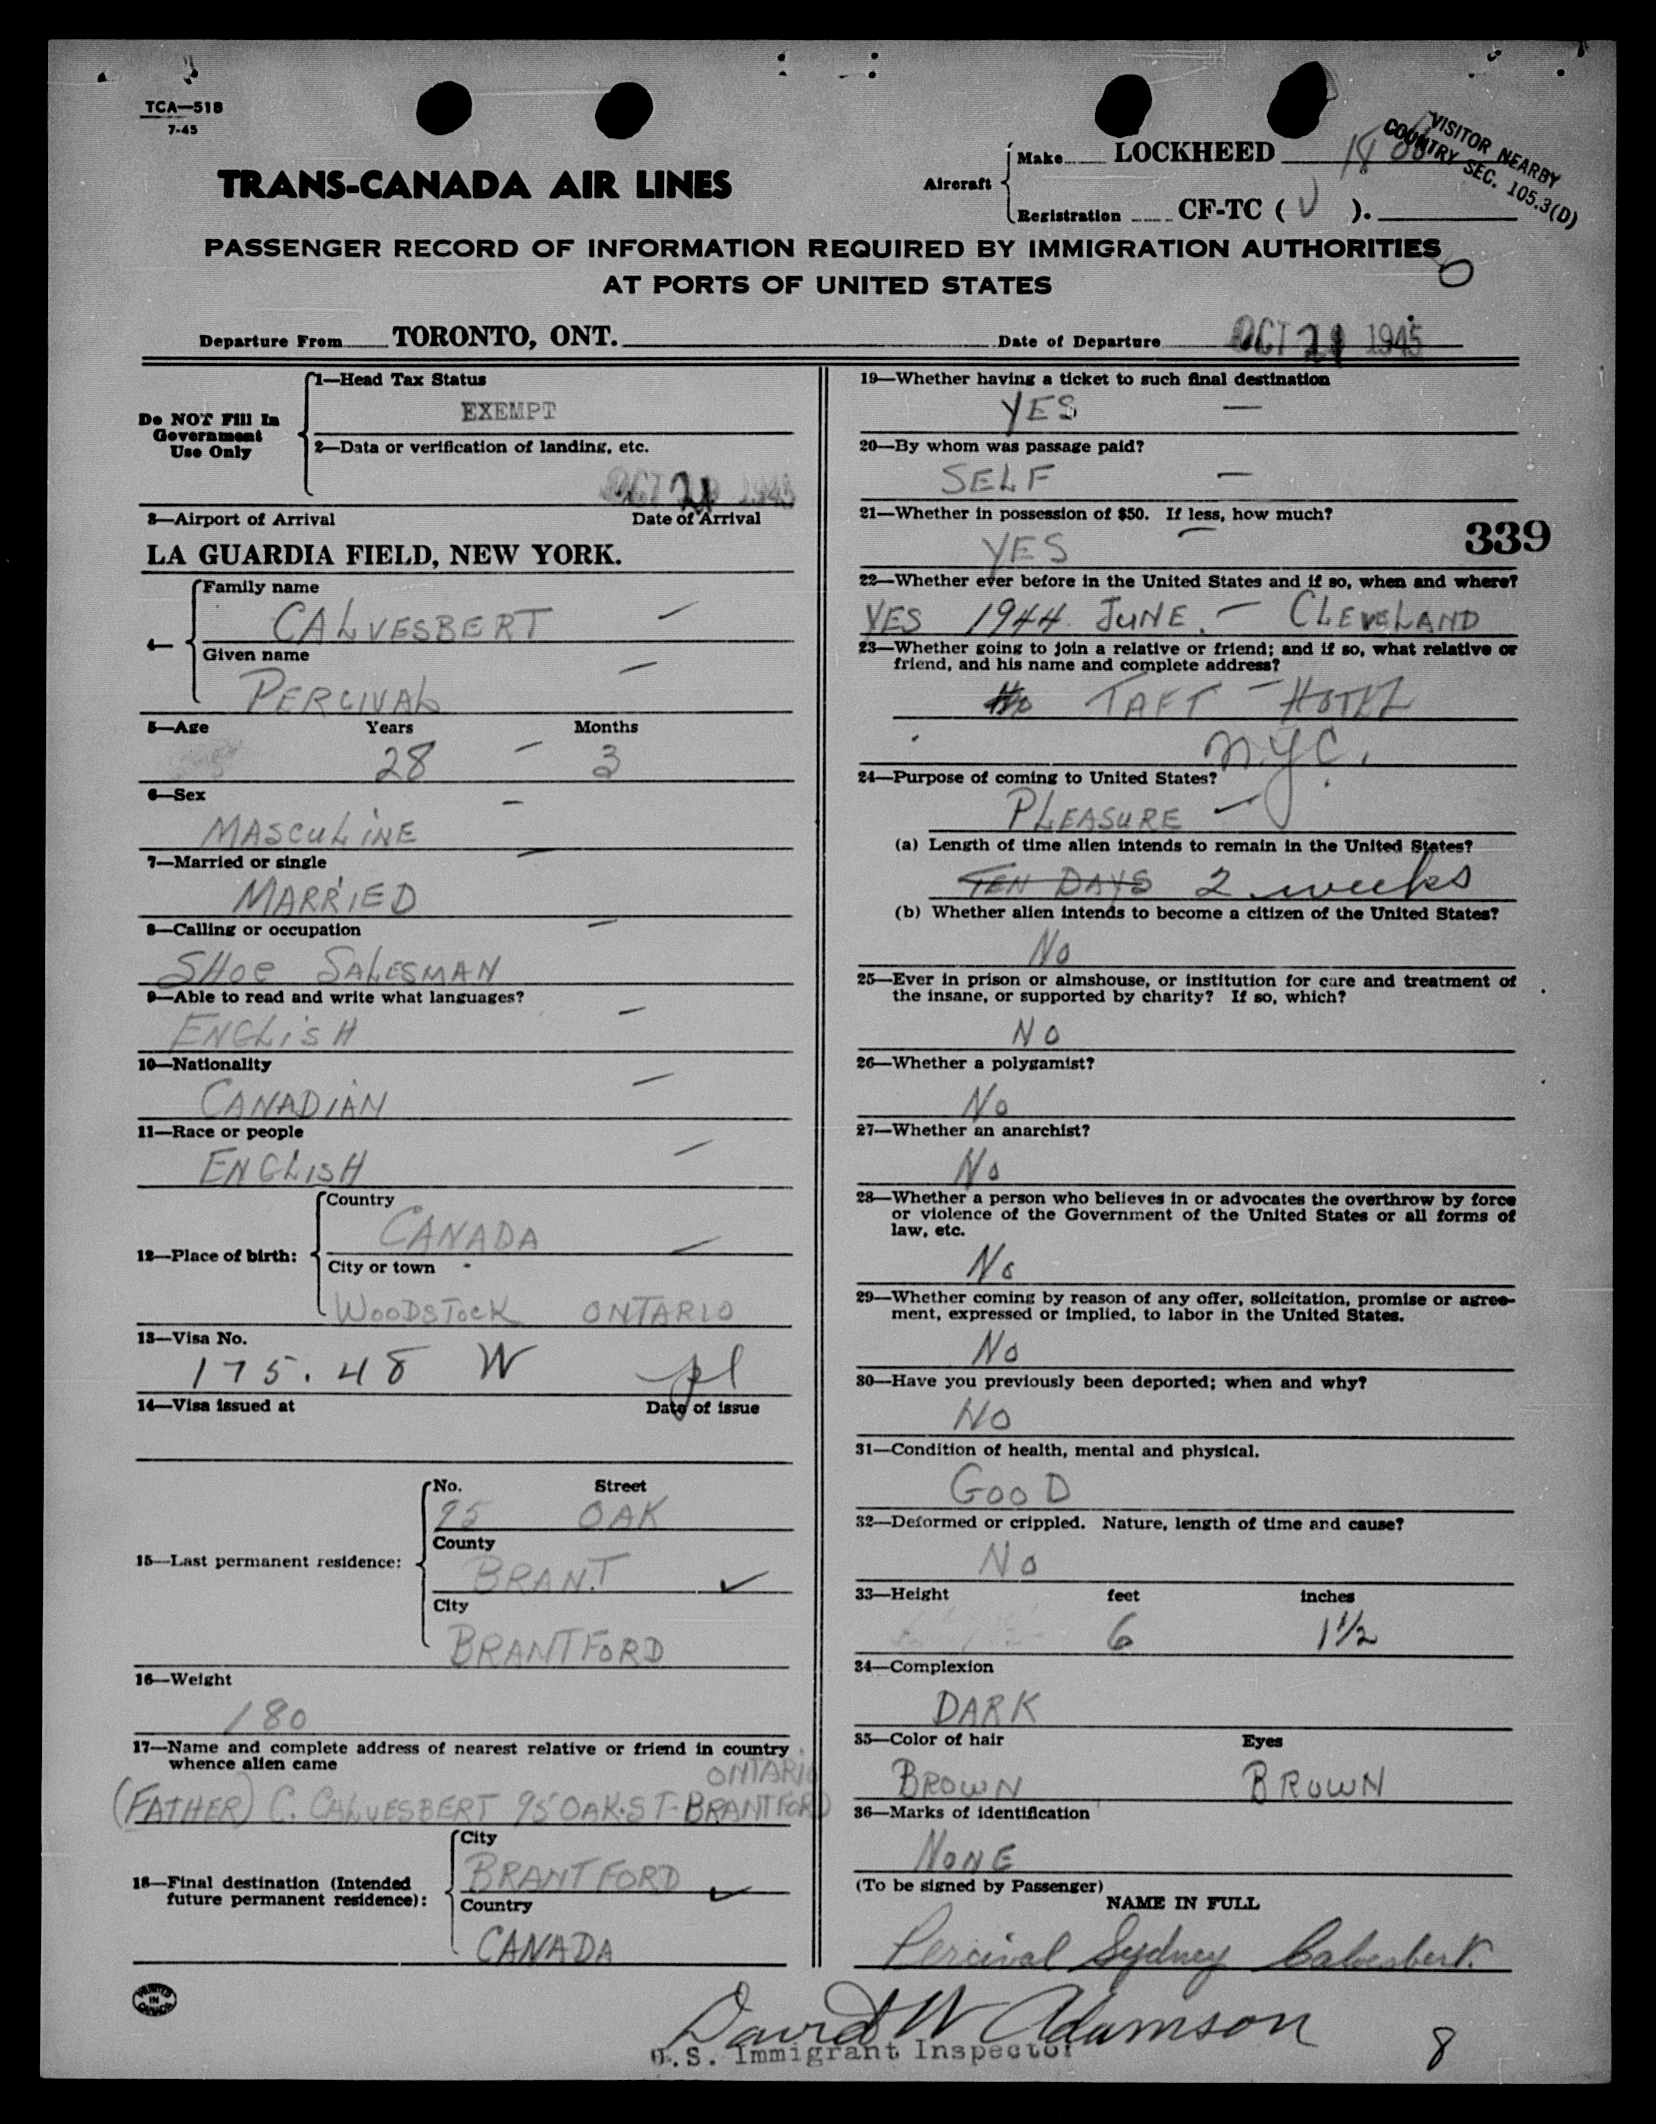 TCA—518
7-45
VISITOR NEARBY
COUNTRY SEC. 105.3(D)
TRANS-CANADA AIR LINES
Aircraft
Make LOCKHEED 18
Registration CF-TC ( V ).
PASSENGER RECORD OF INFORMATION REQUIRED BY IMMIGRATION AUTHORITIES
AT PORTS OF UNITED STATES
Departure From TORONTO, ONT. Date of Departure OCT 21 1945
Do NOT Fill In
Government
Use Only
1—Head Tax Status
EXEMPT
2—Data or verification of landing, etc.
OCT 21 1945
3—Airport of Arrival Date of Arrival
LA GUARDIA FIELD, NEW YORK.
4—
Family name
CALVESBERT
Given name
PERCIVAL
5—Age Years Months
28 3
6—Sex
MASCULINE
7—Married or single
MARRIED
8—Calling or occupation
SHOE SALESMAN
9—Able to read and write what languages?
ENGLISH
10—Nationality
CANADIAN
11—Race or people
ENGLISH
12—Place of birth:
Country
CANADA
City or town
WOODSTOCK ONTARIO
13—Visa No.
175.48 W
14—Visa issued at Date of issue
15—Last permanent residence:
No. Street
95 OAK
County
BRANT
City
BRANTFORD
16—Weight
180
17—Name and complete address of nearest relative or friend in country
whence alien came
ONTARIO
(FATHER) C. CALVESBERT 95 OAK. ST- BRANTFORD
18—Final destination (Intended
future permanent residence):
City
BRANTFORD
Country
CANADA
PRINTED
IN
CANADA
19—Whether having a ticket to such final destination
YES
20—By whom was passage paid?
SELF
21—Whether in possession of $50. If less, how much?
YES
339
22—Whether ever before in the United States and if so, when and where?
YES 1944 JUNE. — CLEVELAND
23—Whether going to join a relative or friend; and if so, what relative or
friend, and his name and complete address?
No TAFT — HOTEL
N.Y.C.
24—Purpose of coming to United States?
PLEASURE
(a) Length of time alien intends to remain in the United States?
TEN DAYS 2 weeks
(b) Whether alien intends to become a citizen of the United States?
No
25—Ever in prison or almshouse, or institution for care and treatment of
the insane, or supported by charity? If so, which?
NO
26—Whether a polygamist?
No
27—Whether an anarchist?
No
28—Whether a person who believes in or advocates the overthrow by force
or violence of the Government of the United States or all forms of
law, etc.
No
29—Whether coming by reason of any offer, solicitation, promise or agree-
ment, expressed or implied, to labor in the United States.
No
30—Have you previously been deported; when and why?
NO
31—Condition of health, mental and physical.
GOOD
32—Deformed or crippled. Nature, length of time and cause?
No
33—Height feet inches
6 1 1/2
34—Complexion
DARK
35—Color of hair Eyes
BROWN BROWN
36—Marks of identification
NONE
(To be signed by Passenger)
NAME IN FULL
Percival Sydney Calvesbert.
David W Adamson
U.S. Immigrant Inspector
8